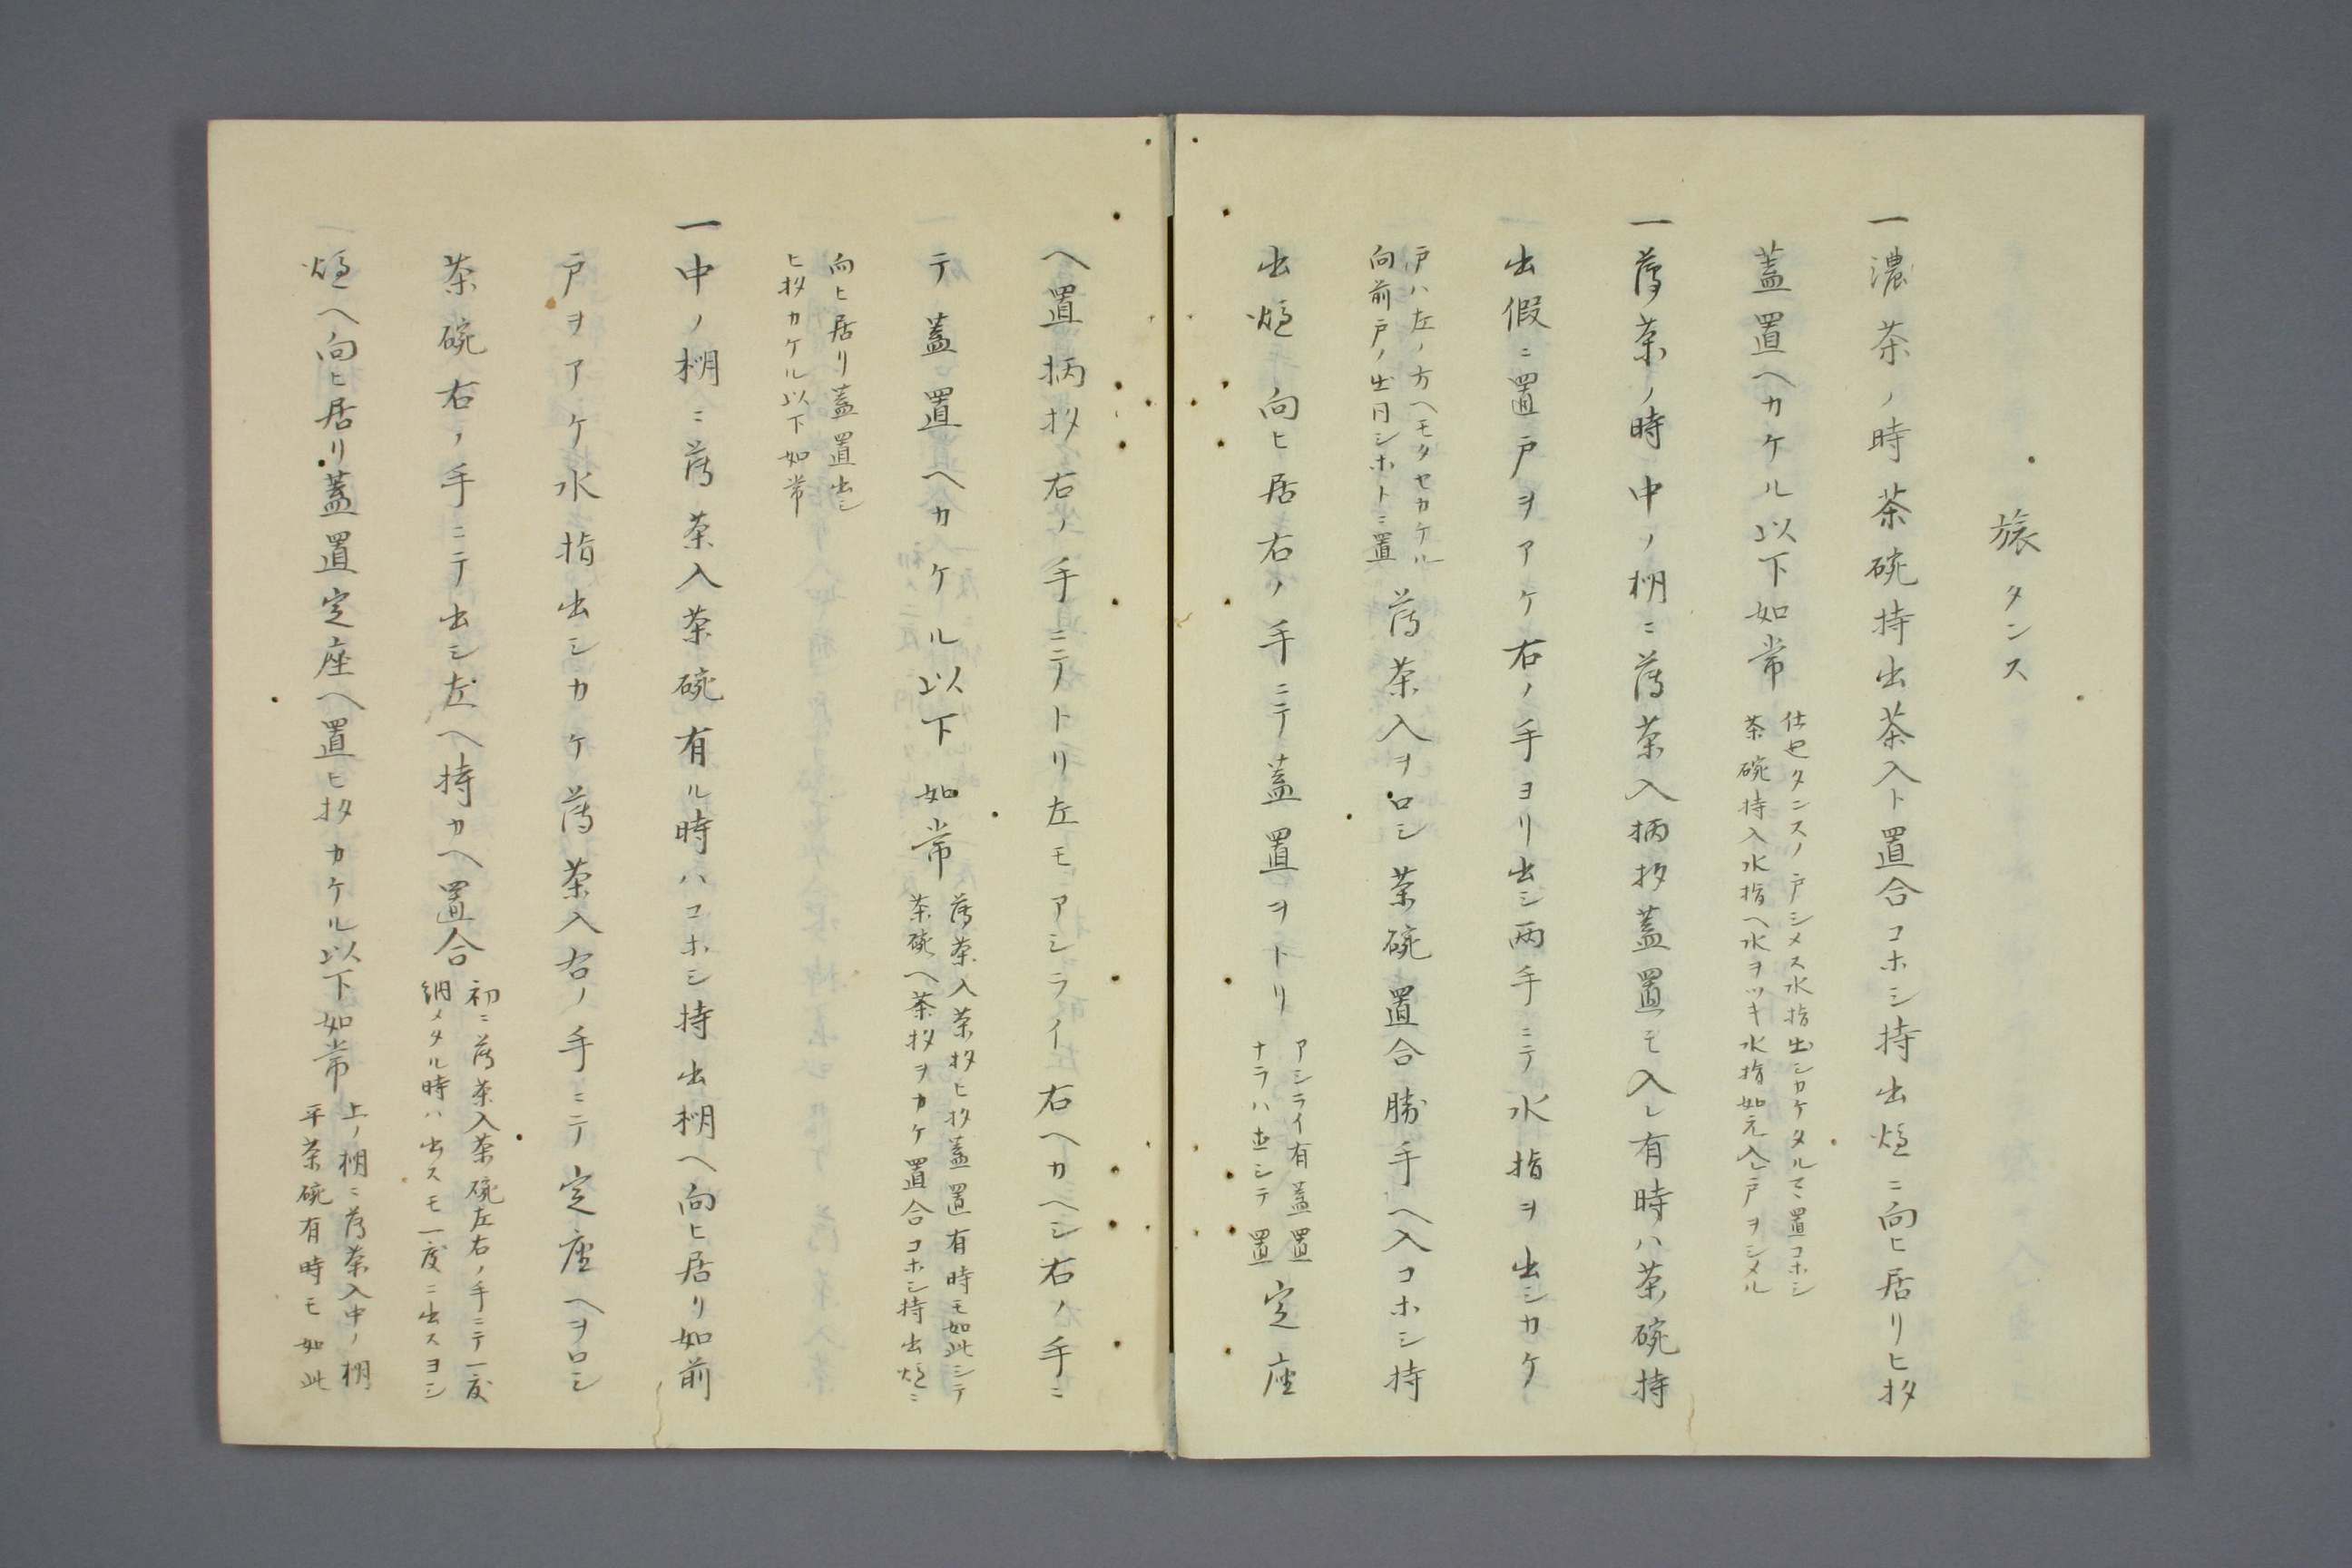 旅タンス
一濃茶ノ時茶碗持出茶入ト置合コホシ持出炉ニ向ヒ居リヒ抄
蓋置ヘカケル以下如常
仕色タンスノ戸シメス水指出シカケタルマヽ置コホシ
茶碗持入水指ヘ水ヲツキ水指如元入レ戸ヲシメル
一薄茶ノ時中ノ棚ニ薄茶入柄抄蓋置モ入レ有時ハ茶碗持
出假ニ置戸ヲアケ右ノ手ヨリ出シ両手ニテ水指ヲ出シカケ
戸ハ左ノ方ヘモタセカケル
向前戸ノ出同シホトニ置
薄茶入ヲロシ茶碗置合勝手ヘ入コホシ持
出炉 向ヒ居右ノ手ニテ蓋置ヲトリ
アシライ有蓋置
ナラハ直シテ置
定座
ヘ置柄抄右ノ手ニテトリ左モアシライ右ヘカヘシ右ノ手ニ
テ蓋置ヘカケル以下如常
薄茶入茶抄ヒ抄蓋置有時モ如此シテ
茶碗ヘ茶抄ヲカケ置合コホシ持出炉ニ
向ヒ居リ蓋置出シ
ヒ抄カケル以下如常
一中ノ棚ニ薄茶入茶碗有ル時ハコホシ持出棚ヘ向ヒ居リ如前
戸ヲアケ水指出シカケ薄茶入右ノ手ニテ定座ヘヲロシ
茶碗右ノ手ニテ出シ左ヘ持カヘ置合
初ニ薄茶入茶碗左右ノ手ニテ一度
納メタル時ハ出スモ一度ニ出スヨシ
炉ヘ向ヒ居リ蓋置定座ヘ置ヒ抄カケル以下如常
上ノ棚ニ薄茶入中ノ棚
平茶碗有時モ如此